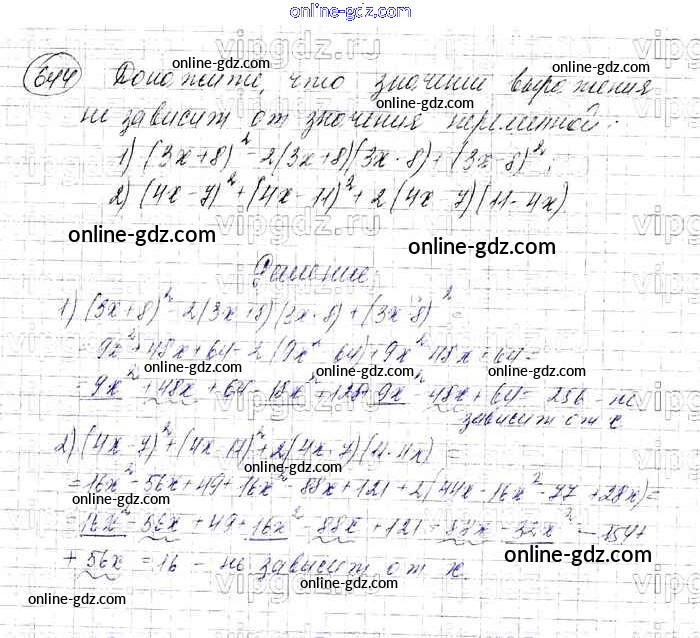 online-gdz.com
644 Докажите, что значение выражения
не зависит от значения переменной:
1) (3x+8)² - 2(3x+8)(3x-8) + (3x-8)²;
2) (4x-7)² + (4x-11)² + 2(4x-7)(11-4x).
online-gdz.com
online-gdz.com
Решение
1) (3x+8)² - 2(3x+8)(3x-8) + (3x-8)² =
= 9x² + 48x + 64 - 2(9x² - 64) + 9x² - 48x + 64 =
= 9x² + 48x + 64 - 18x² + 128 + 9x² - 48x + 64 = 256 - не
зависит от x
2) (4x-7)² + (4x-11)² + 2(4x-7)(11-4x) =
= 16x² - 56x + 49 + 16x² - 88x + 121 + 2(44x - 16x² - 77 + 28x) =
= 16x² - 56x + 49 + 16x² - 88x + 121 + 88x - 32x² - 154 +
+ 56x = 16 - не зависит от x.
online-gdz.com
online-gdz.com
online-gdz.com